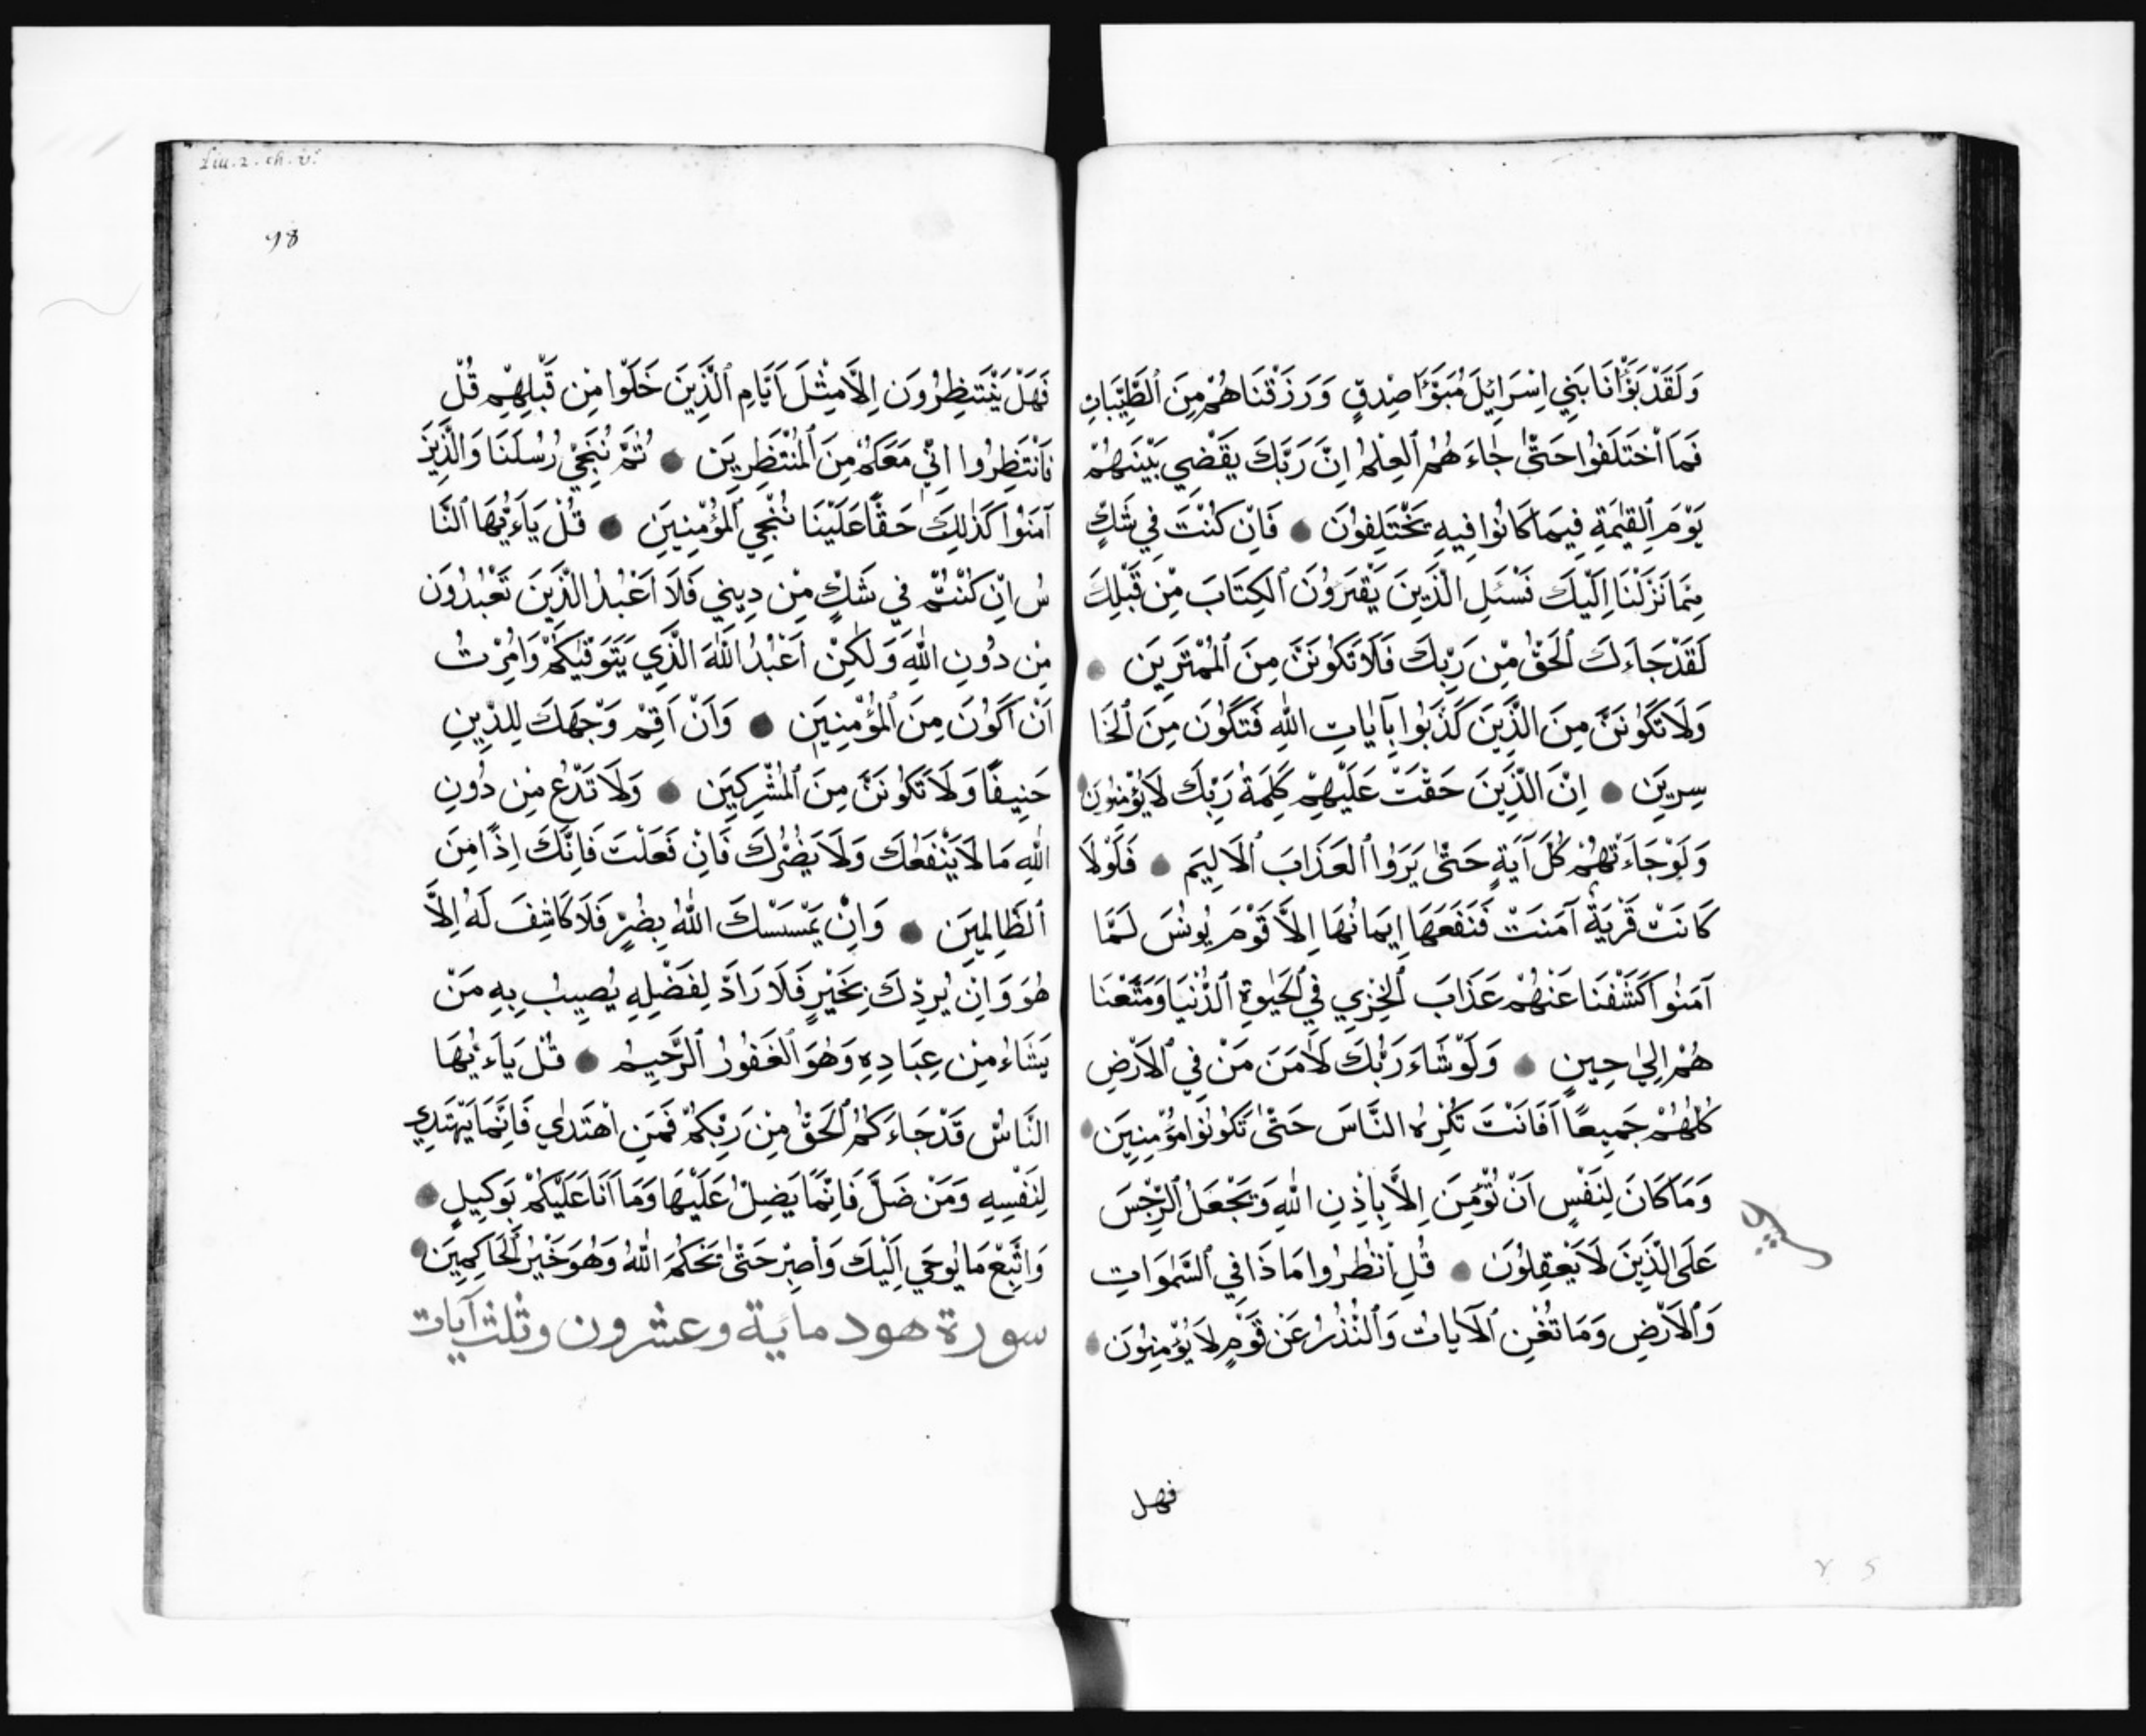 وَلَقَدْ بَوَّأْنَا بَنِي اِسْرَائِلَ مُبَوَّءَا صِدْقٍ وَرَزَقْنَاهُمْ مِنَ ٱلطَّيِّبَاتِ
فَمَا ٱخْتَلَفُوا حَتَّىٰ جَاءَهُمُ ٱلْعِلْمُ اِنَّ رَبَّكَ يَقْضِي بَيْنَهُمْ
يَوْمَ ٱلْقِيٰمَةِ فِيمَا كَانُوا فِيهِ يَخْتَلِفُونَ ● فَاِنْ كُنْتَ فِي شَكٍّ
مِمَّا نَزَلْنَا اِلَيْكَ فَسْئَلِ الَّذِينَ يَقْرَؤُنَ ٱلْكِتَابَ مِنْ قَبْلِكَ
لَقَدْ جَاءَكَ ٱلْحَقُّ مِنْ رَبِّكَ فَلَا تَكُونَنَّ مِنَ ٱلْمُمْتَرِينَ ●
وَلَا تَكُونَنَّ مِنَ الَّذِينَ كَذَّبُوا بِآيَاتِ اللّٰهِ فَتَكُونَ مِنَ ٱلْخَا
سِرِينَ ● اِنَّ الَّذِينَ حَقَّتْ عَلَيْهِمْ كَلِمَةُ رَبِّكَ لَا يُؤْمِنُونَ ●
وَلَوْ جَاءَتْهُمْ كُلُّ آيَةٍ حَتَّىٰ يَرَوُا ٱلْعَذَابَ ٱلْاَلِيمَ ● فَلَوْلَا
كَانَتْ قَرْيَةٌ آمَنَتْ فَنَفَعَهَا اِيمَانُهَا اِلَّا قَوْمَ يُونُسَ لَمَّا
آمَنُوا كَشَفْنَا عَنْهُمْ عَذَابَ ٱلْخِزْيِ فِي ٱلْحَيٰوةِ ٱلدُّنْيَا وَمَتَّعْنَا
هُمْ اِلٰي حِينٍ ● وَلَوْ شَاءَ رَبُّكَ لَاٰمَنَ مَنْ فِي ٱلْاَرْضِ
كُلُّهُمْ جَمِيعًا اَفَاَنْتَ تُكْرِهُ النَّاسَ حَتَّىٰ تَكُونُوا مُؤْمِنِينَ ●
وَمَا كَانَ لِنَفْسٍ اَنْ تُؤْمِنَ اِلَّا بِاِذْنِ اللّٰهِ وَيَجْعَلُ ٱلرِّجْسَ
عَلَى الَّذِينَ لَا يَعْقِلُونَ ● قُلِ ٱنْظُرُوا مَا ذَا فِي ٱلسَّمٰوَاتِ
وَٱلْاَرْضِ وَمَا تُغْنِ ٱلْآيَاتُ وَٱلنُّذُرُ عَنْ قَوْمٍ لَا يُؤْمِنُونَ ●
فهل
liu. 2. ch. v.
98
فَهَلْ يَنْتَظِرُونَ اِلَّا مِثْلَ اَيَّامِ ٱلَّذِينَ خَلَوْا مِنْ قَبْلِهِمْ قُلْ
فَٱنْتَظِرُوا اِنِّي مَعَكُمْ مِنَ ٱلْمُنْتَظِرِينَ ● ثُمَّ نُنَجِّي رُسُلَنَا وَالَّذِينَ
آمَنُوا كَذٰلِكَ حَقًّا عَلَيْنَا نُنْجِي ٱلْمُؤْمِنِينَ ● قُلْ يَاءَيُّهَا ٱلنَّا
سُ اِنْ كُنْتُمْ فِي شَكٍّ مِنْ دِينِي فَلَا اَعْبُدُ الَّذِينَ تَعْبُدُونَ
مِنْ دُونِ اللّٰهِ وَلٰكِنْ اَعْبُدُ اللّٰهَ الَّذِي يَتَوَفّٰيكُمْ وَاُمِرْتُ
اَنْ اَكُونَ مِنَ ٱلْمُؤْمِنِينَ ● وَاَنْ اَقِمْ وَجْهَكَ لِلدِّينِ
حَنِيفًا وَلَا تَكُونَنَّ مِنَ ٱلْمُشْرِكِينَ ● وَلَا تَدْعُ مِنْ دُونِ
اللّٰهِ مَا لَا يَنْفَعُكَ وَلَا يَضُرُّكَ فَاِنْ فَعَلْتَ فَاِنَّكَ اِذًا مِنَ
ٱلظَّالِمِينَ ● وَاِنْ يَمْسَسْكَ اللّٰهُ بِضُرٍّ فَلَا كَاشِفَ لَهُ اِلَّا
هُوَ وَاِنْ يُرِدْكَ بِخَيْرٍ فَلَا رَادَّ لِفَضْلِهِ يُصِيبُ بِهِ مَنْ
يَشَاءُ مِنْ عِبَادِهِ وَهُوَ ٱلْغَفُورُ ٱلرَّحِيمُ ● قُلْ يَاءَيُّهَا
النَّاسُ قَدْ جَاءَكُمُ ٱلْحَقُّ مِنْ رَبِّكُمْ فَمَنِ اهْتَدٰي فَاِنَّمَا يَهْتَدِي
لِنَفْسِهِ وَمَنْ ضَلَّ فَاِنَّمَا يَضِلُّ عَلَيْهَا وَمَا اَنَا عَلَيْكُمْ بِوَكِيلٍ ●
وَاتَّبِعْ مَا يُوحَي اِلَيْكَ وَٱصْبِرْ حَتَّىٰ يَحْكُمَ اللّٰهُ وَهُوَ خَيْرُ ٱلْحَاكِمِينَ ●
سورة هود ماية وعشرون وثلث آيات